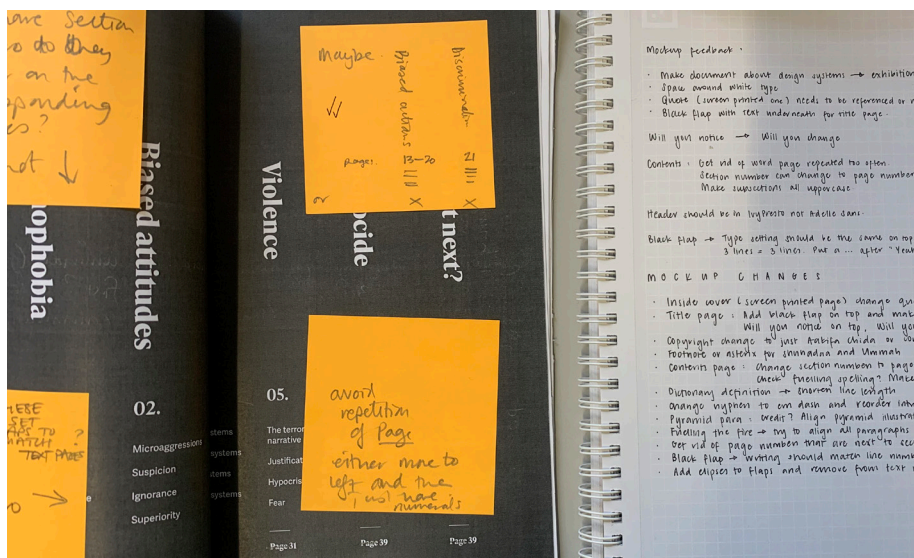 are Section
do they
on the
sponding
es?
not ↓
nophobia
Biased attitudes
ESE
SET
TO
MATCH ?
TEXT PAGES
→
02.
Microaggressions
Suspicion
Ignorance
Superiority
stems
systems
tems
systems
Violence
Maybe.
Biased actions
Discrimination
pages.
13-20
21
ocide
t next?
avoid
repetition
of Page
either move to
left and then
just have
numerals
05.
The terror
narrative
Justificat
Hypocris
Fear
Page 31
Page 39
Page 39
Mockup feedback.
· Make document about design systems → exhibition
· Space around white type
· Quote (screen printed one) needs to be referenced or
· Black flap with text underneath for title page.
Will you notice → Will you change
Contents: Get rid of word page repeated too often.
Section number can change to page number
Make subsections all uppercase
Header should be in IvyPresto not Adelle Sans.
Black flap → Type setting should be the same on top
3 lines = 3 lines. Put a ... after "Yeah
MOCKUP CHANGES
· Inside cover (screen printed page) change quo
· Title page: Add black flap on top and mak
Will you notice on top, Will you
· Copyright change to just Aabifa Chida or
· Footnote or asterix for Shuhadaa and Ummah
· Contents page: change section number to page
check fuelling spelling? Make
· Dictionary definition → shorten line length
· Change hyphen to em dash and reorder
· Pyramid para: credit? Align pyramid illustrat
· Fuelling the fire → try to align all paragraphs
· Get rid of page number that are next to sec
· Black flap → writing should match line numb
· Add elipses to flaps and remove from text